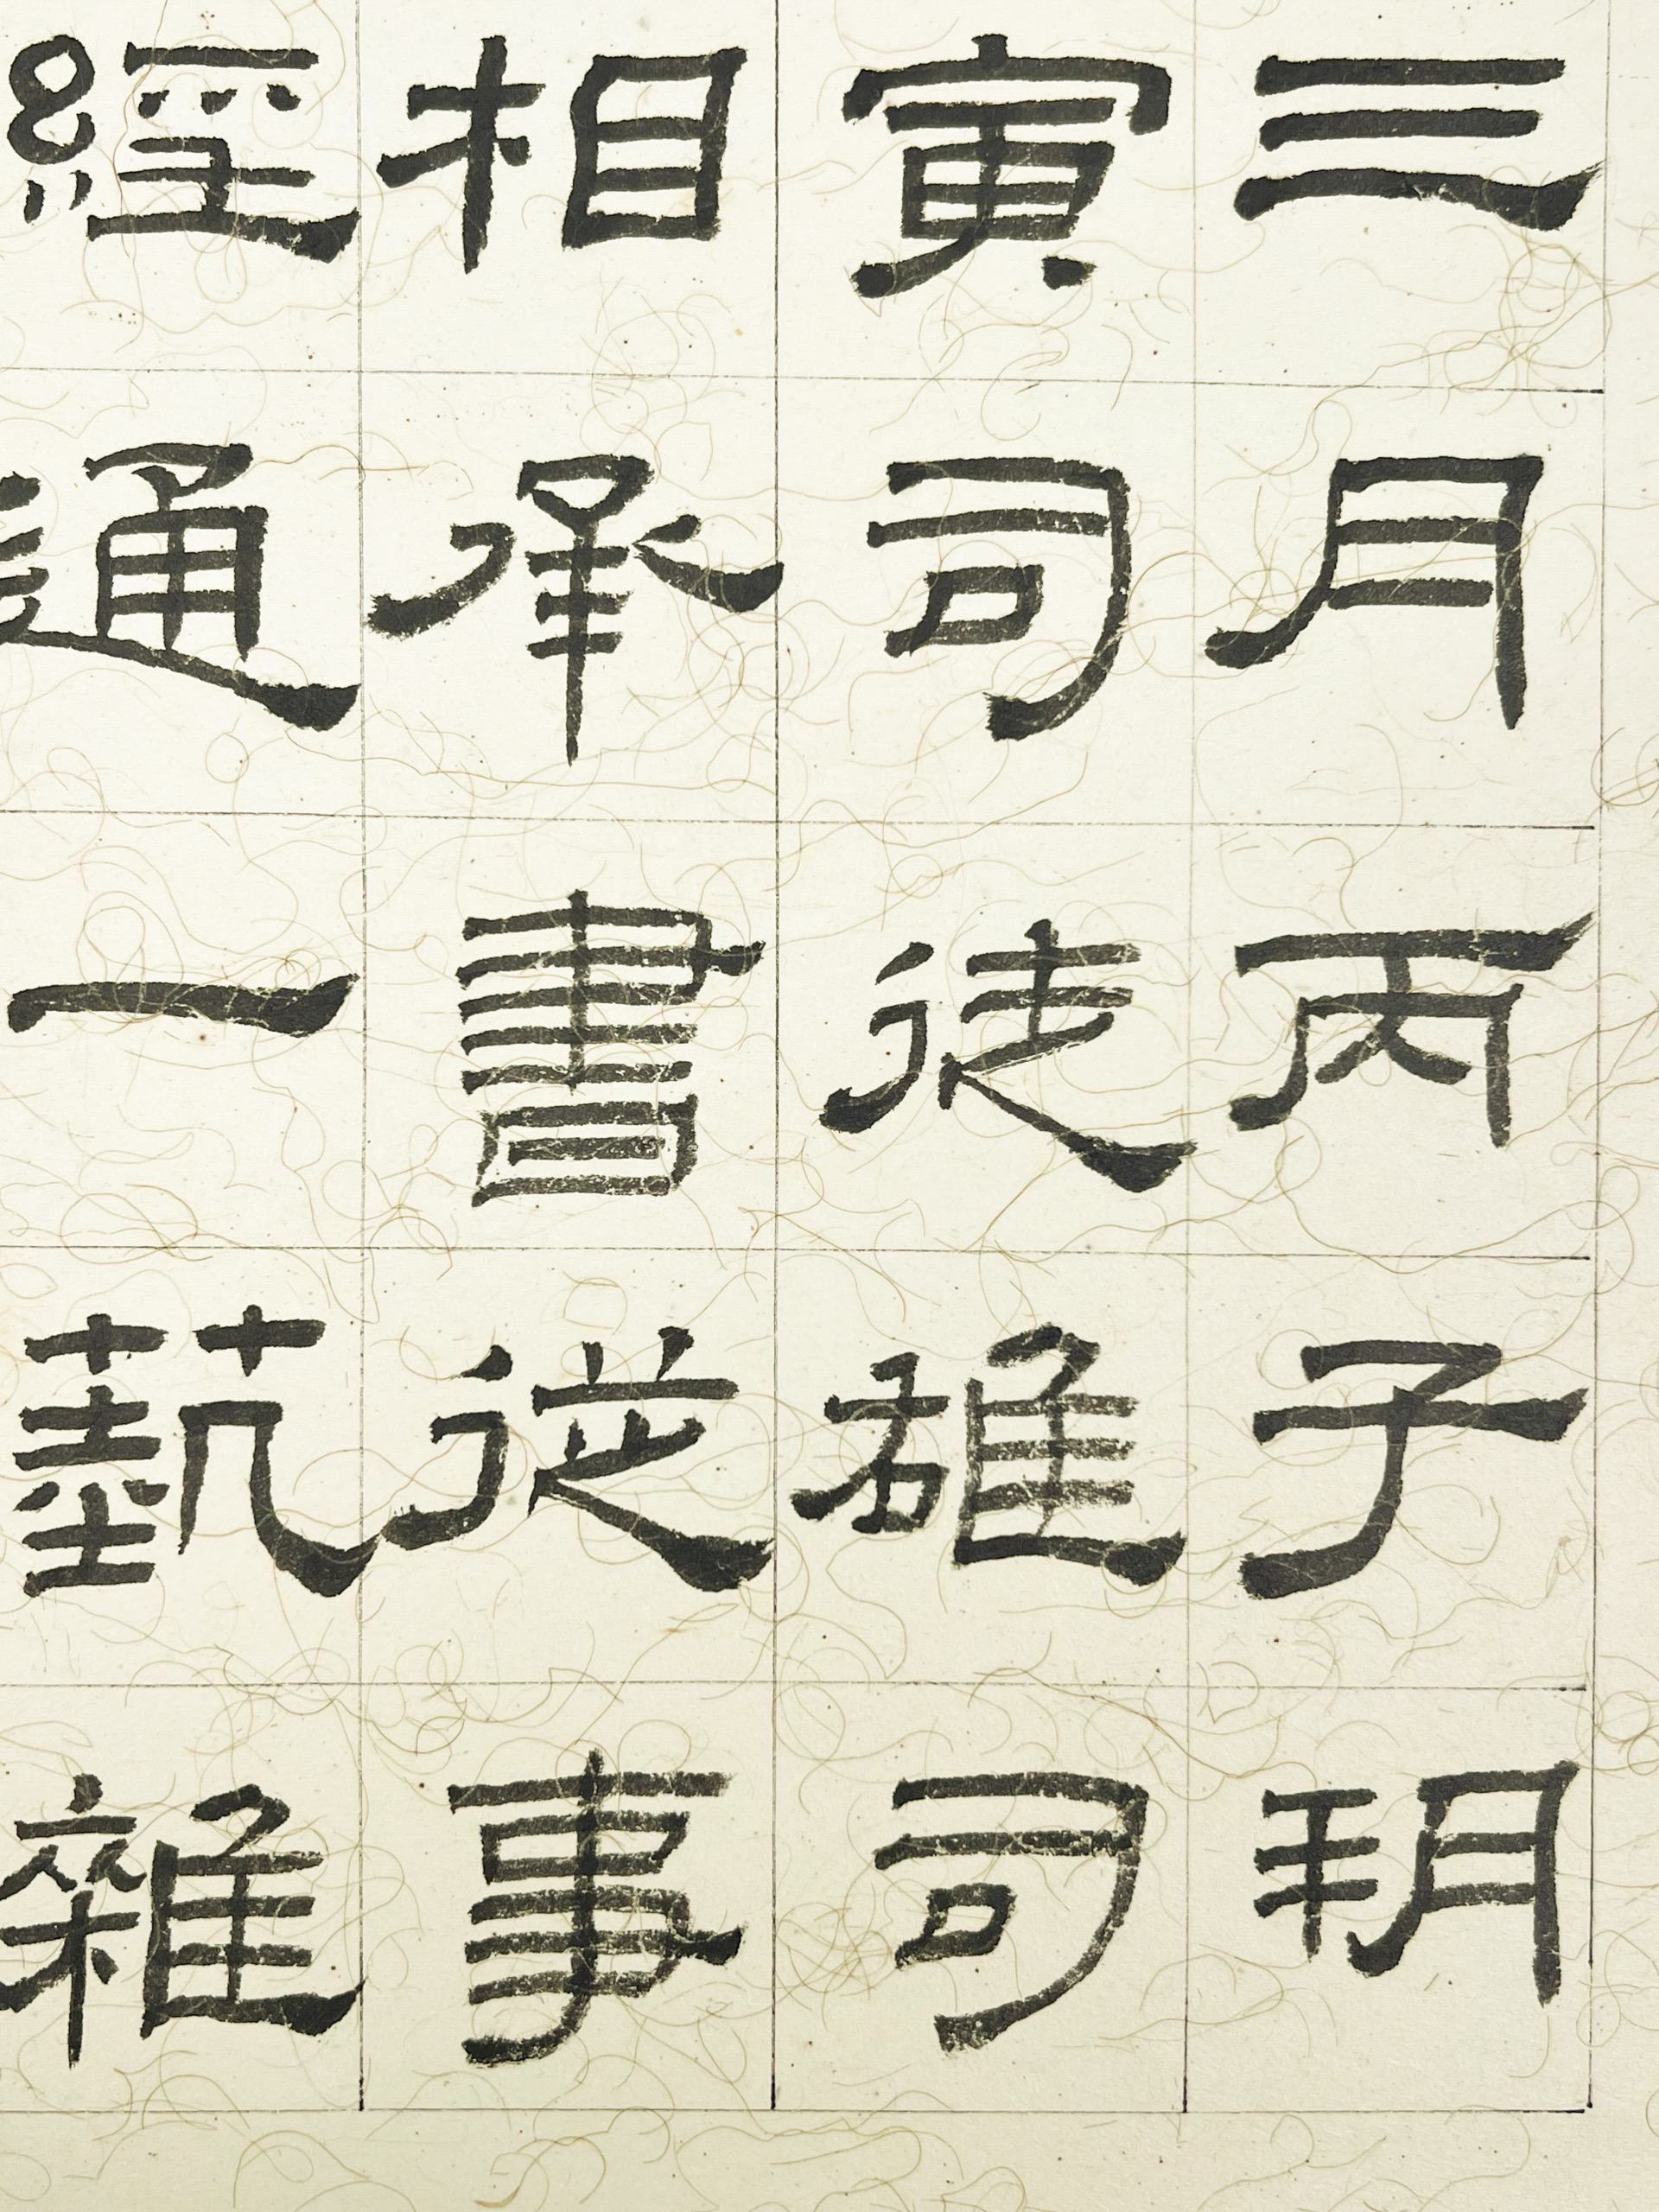 三月丙子朔
寅司徒雄司
相承書從事
經通一蓺雜